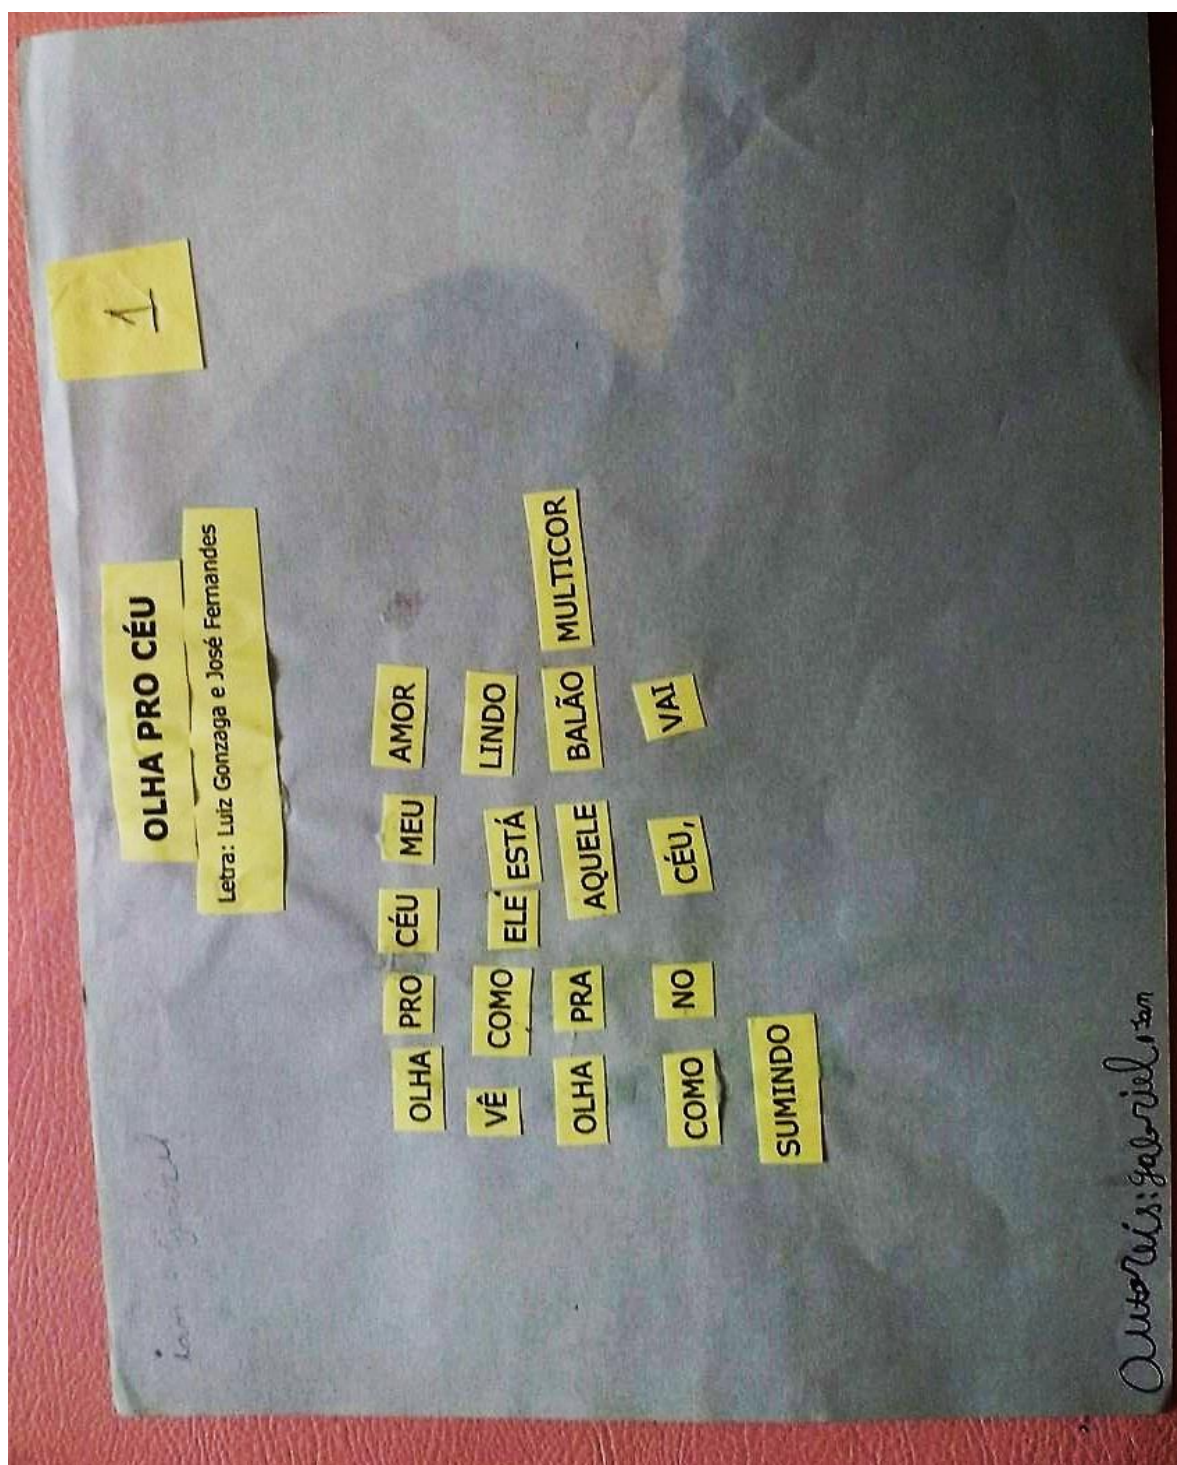 1
OLHA PRO CÉU
Letra: Luiz Gonzaga e José Fernandes
OLHA PRO CÉU MEU AMOR
VÊ COMO ELE ESTÁ LINDO
OLHA PRA AQUELE BALÃO MULTICOR
COMO NO CÉU, VAI
SUMINDO
autoreis: gabriel, ian